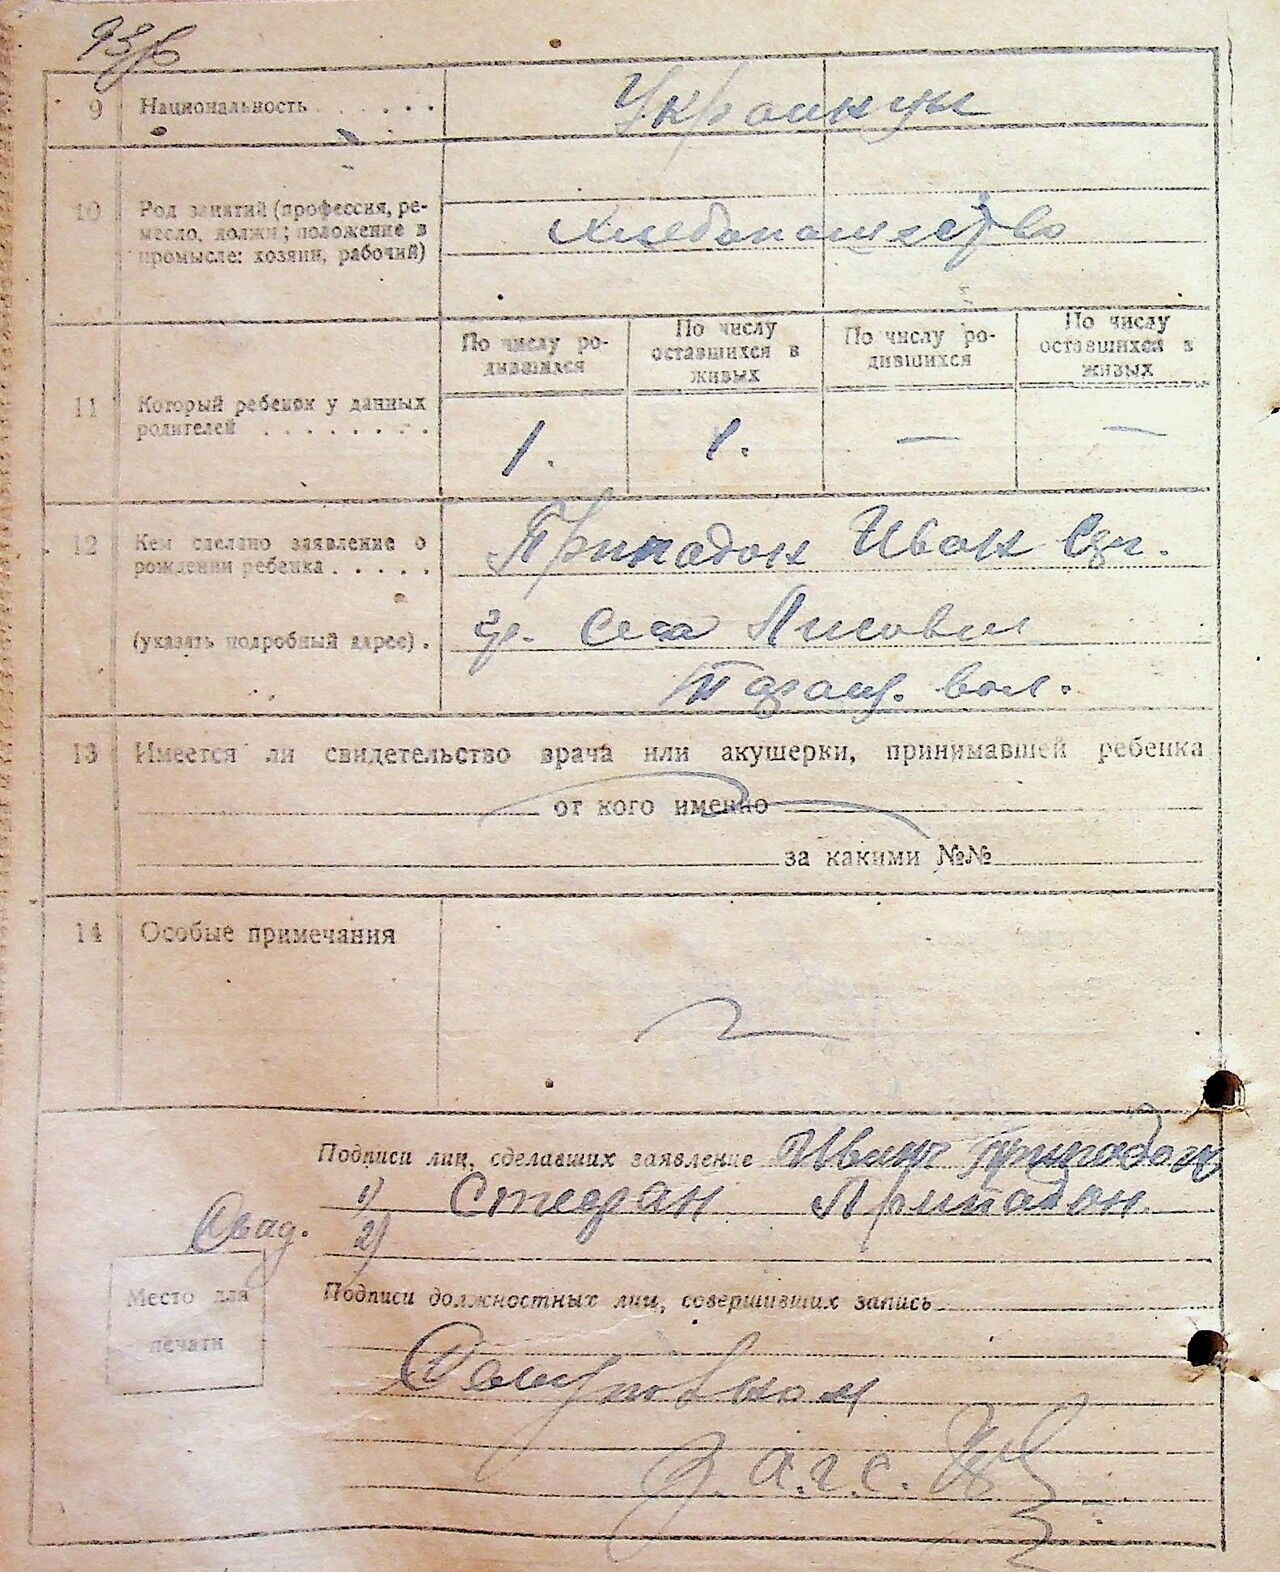 9 Национальность . . . . . . Украинцы
10 Род занятий (профессия, ре-
месло, должн; положение в
промысле: хозяин, рабочий)
Хлебопашество
По числу ро-
дившихся
По числу
оставшихся в
живых
По числу ро-
дившихся
По числу
оставшихся в
живых
11 Который ребенок у данных
родителей . . . . . . . .
1. 1. — —
12 Кем сделано заявление о
рождении ребенка . . . . .
Припадон Иван
(указать подробный адрес) .
гр. села
вол.
13 Имеется ли свидетельство врача или акушерки, принимавшей ребенка
от кого именно
за какими №№
14 Особые примечания
Подписи лиц, сделавших заявление Иван Припадон
1) Стефан Припадон
Свид. 2)
Место для
печати
Подписи должностных лиц, совершивших запись
З.А.Г.С.